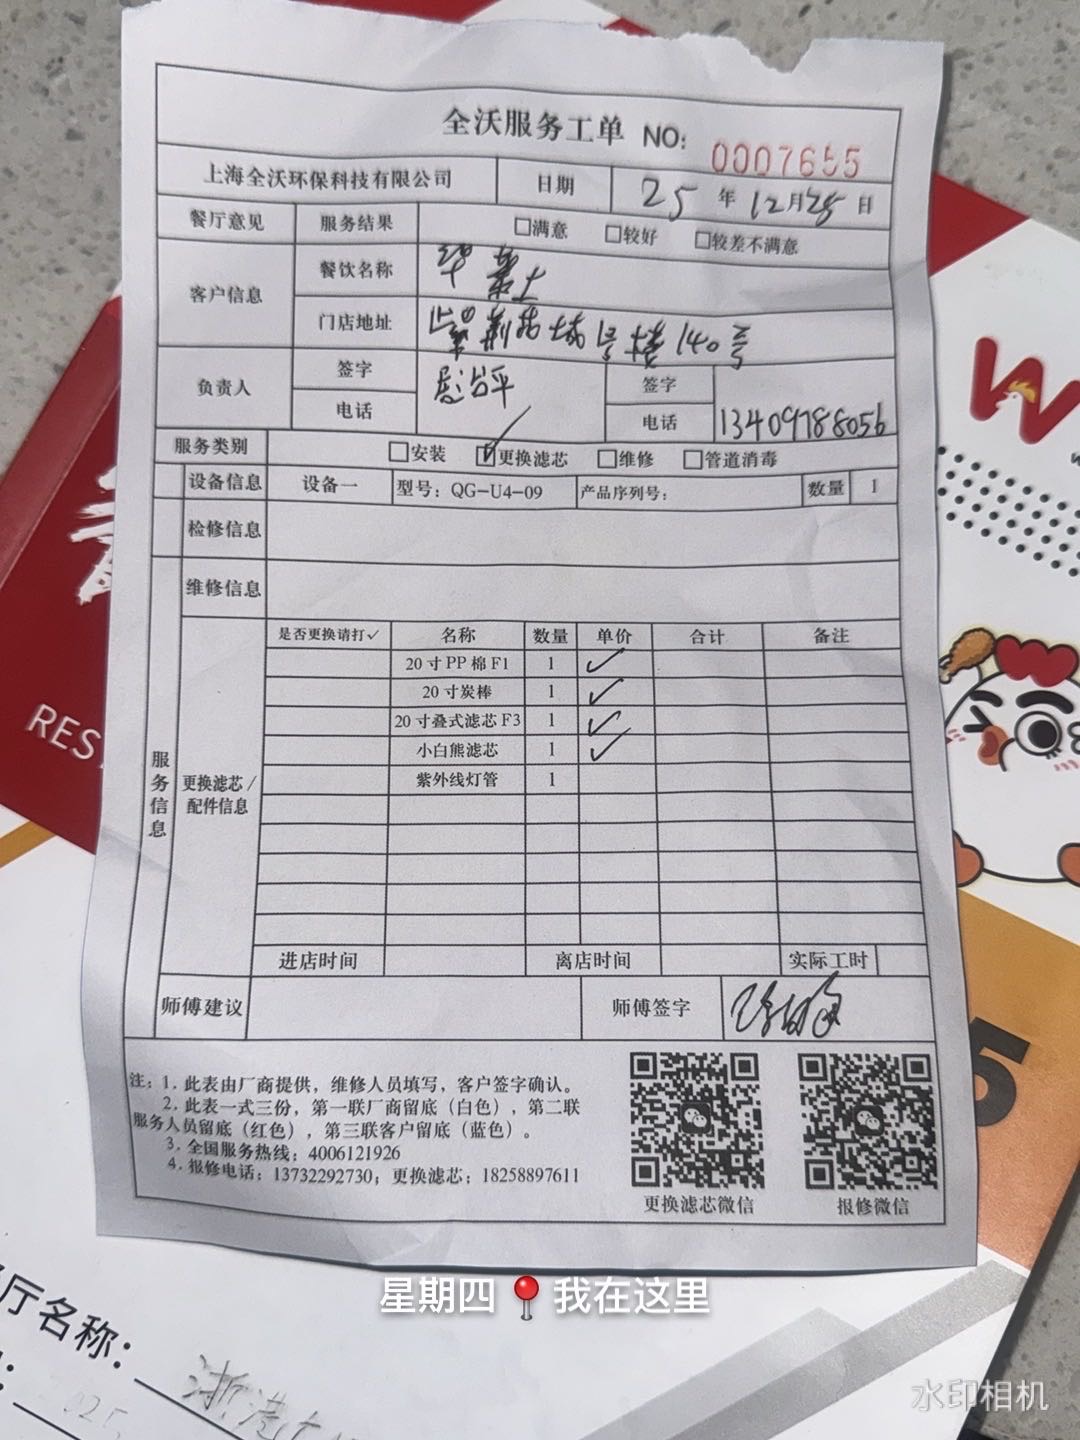 全沃服务工单 NO: 0007655
上海全沃环保科技有限公司 日期 25 年 12 月 25 日
餐厅意见 服务结果 □满意 □较好 □较差不满意
客户信息 餐饮名称 华莱士
门店地址 荆 城 号楼 140号
负责人 签字 平 签字
电话 电话 13409788056
服务类别 □安装 ☑更换滤芯 □维修 □管道消毒
设备信息 设备一 型号：QG-U4-09 产品序列号： 数量 1
检修信息
维修信息
服务信息
更换滤芯/配件信息
是否更换请打✓ 名称 数量 单价 合计 备注
20寸PP棉F1 1 ✓
20寸炭棒 1 ✓
20寸叠式滤芯F3 1 ✓
小白熊滤芯 1 ✓
紫外线灯管 1
进店时间 离店时间 实际工时
师傅建议 师傅签字
注：1．此表由厂商提供，维修人员填写，客户签字确认。
2．此表一式三份，第一联厂商留底（白色），第二联
服务人员留底（红色），第三联客户留底（蓝色）。
3．全国服务热线：4006121926
4．报修电话：13732292730；更换滤芯：18258897611
更换滤芯微信 报修微信
星期四 📍我在这里
厅名称：浙港
水印相机
RES
W
5